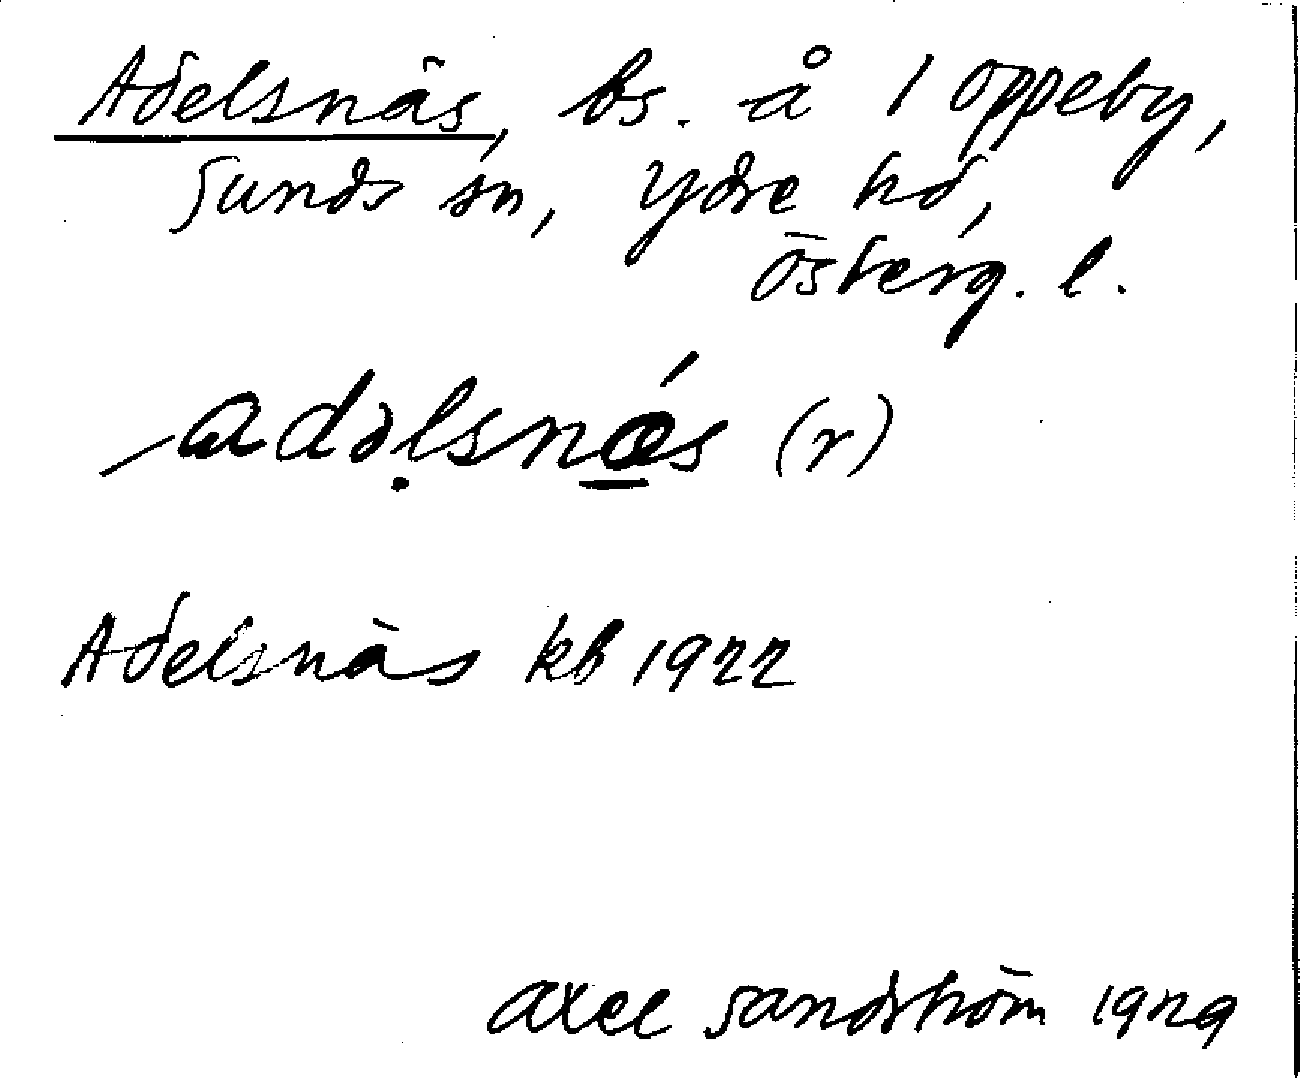 Adelsnäs, bs. å 1 Oppeby,
Sunds sn, Ydre hd,
Österg. l.
adəlsnǽs (r)
Adelsnäs kb 1922
Axel Sandström 1929